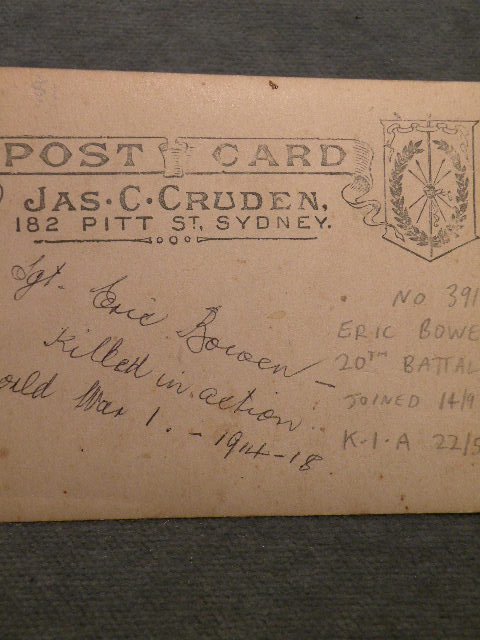 POST CARD
JAS. C. CRUDEN,
182 PITT ST, SYDNEY.
Sgt. Eric Bowen –
Killed in action
orld War 1. – 1914–18
NO 391
ERIC BOWE
20TH BATTAL
JOINED 14/9
K.I.A 22/5